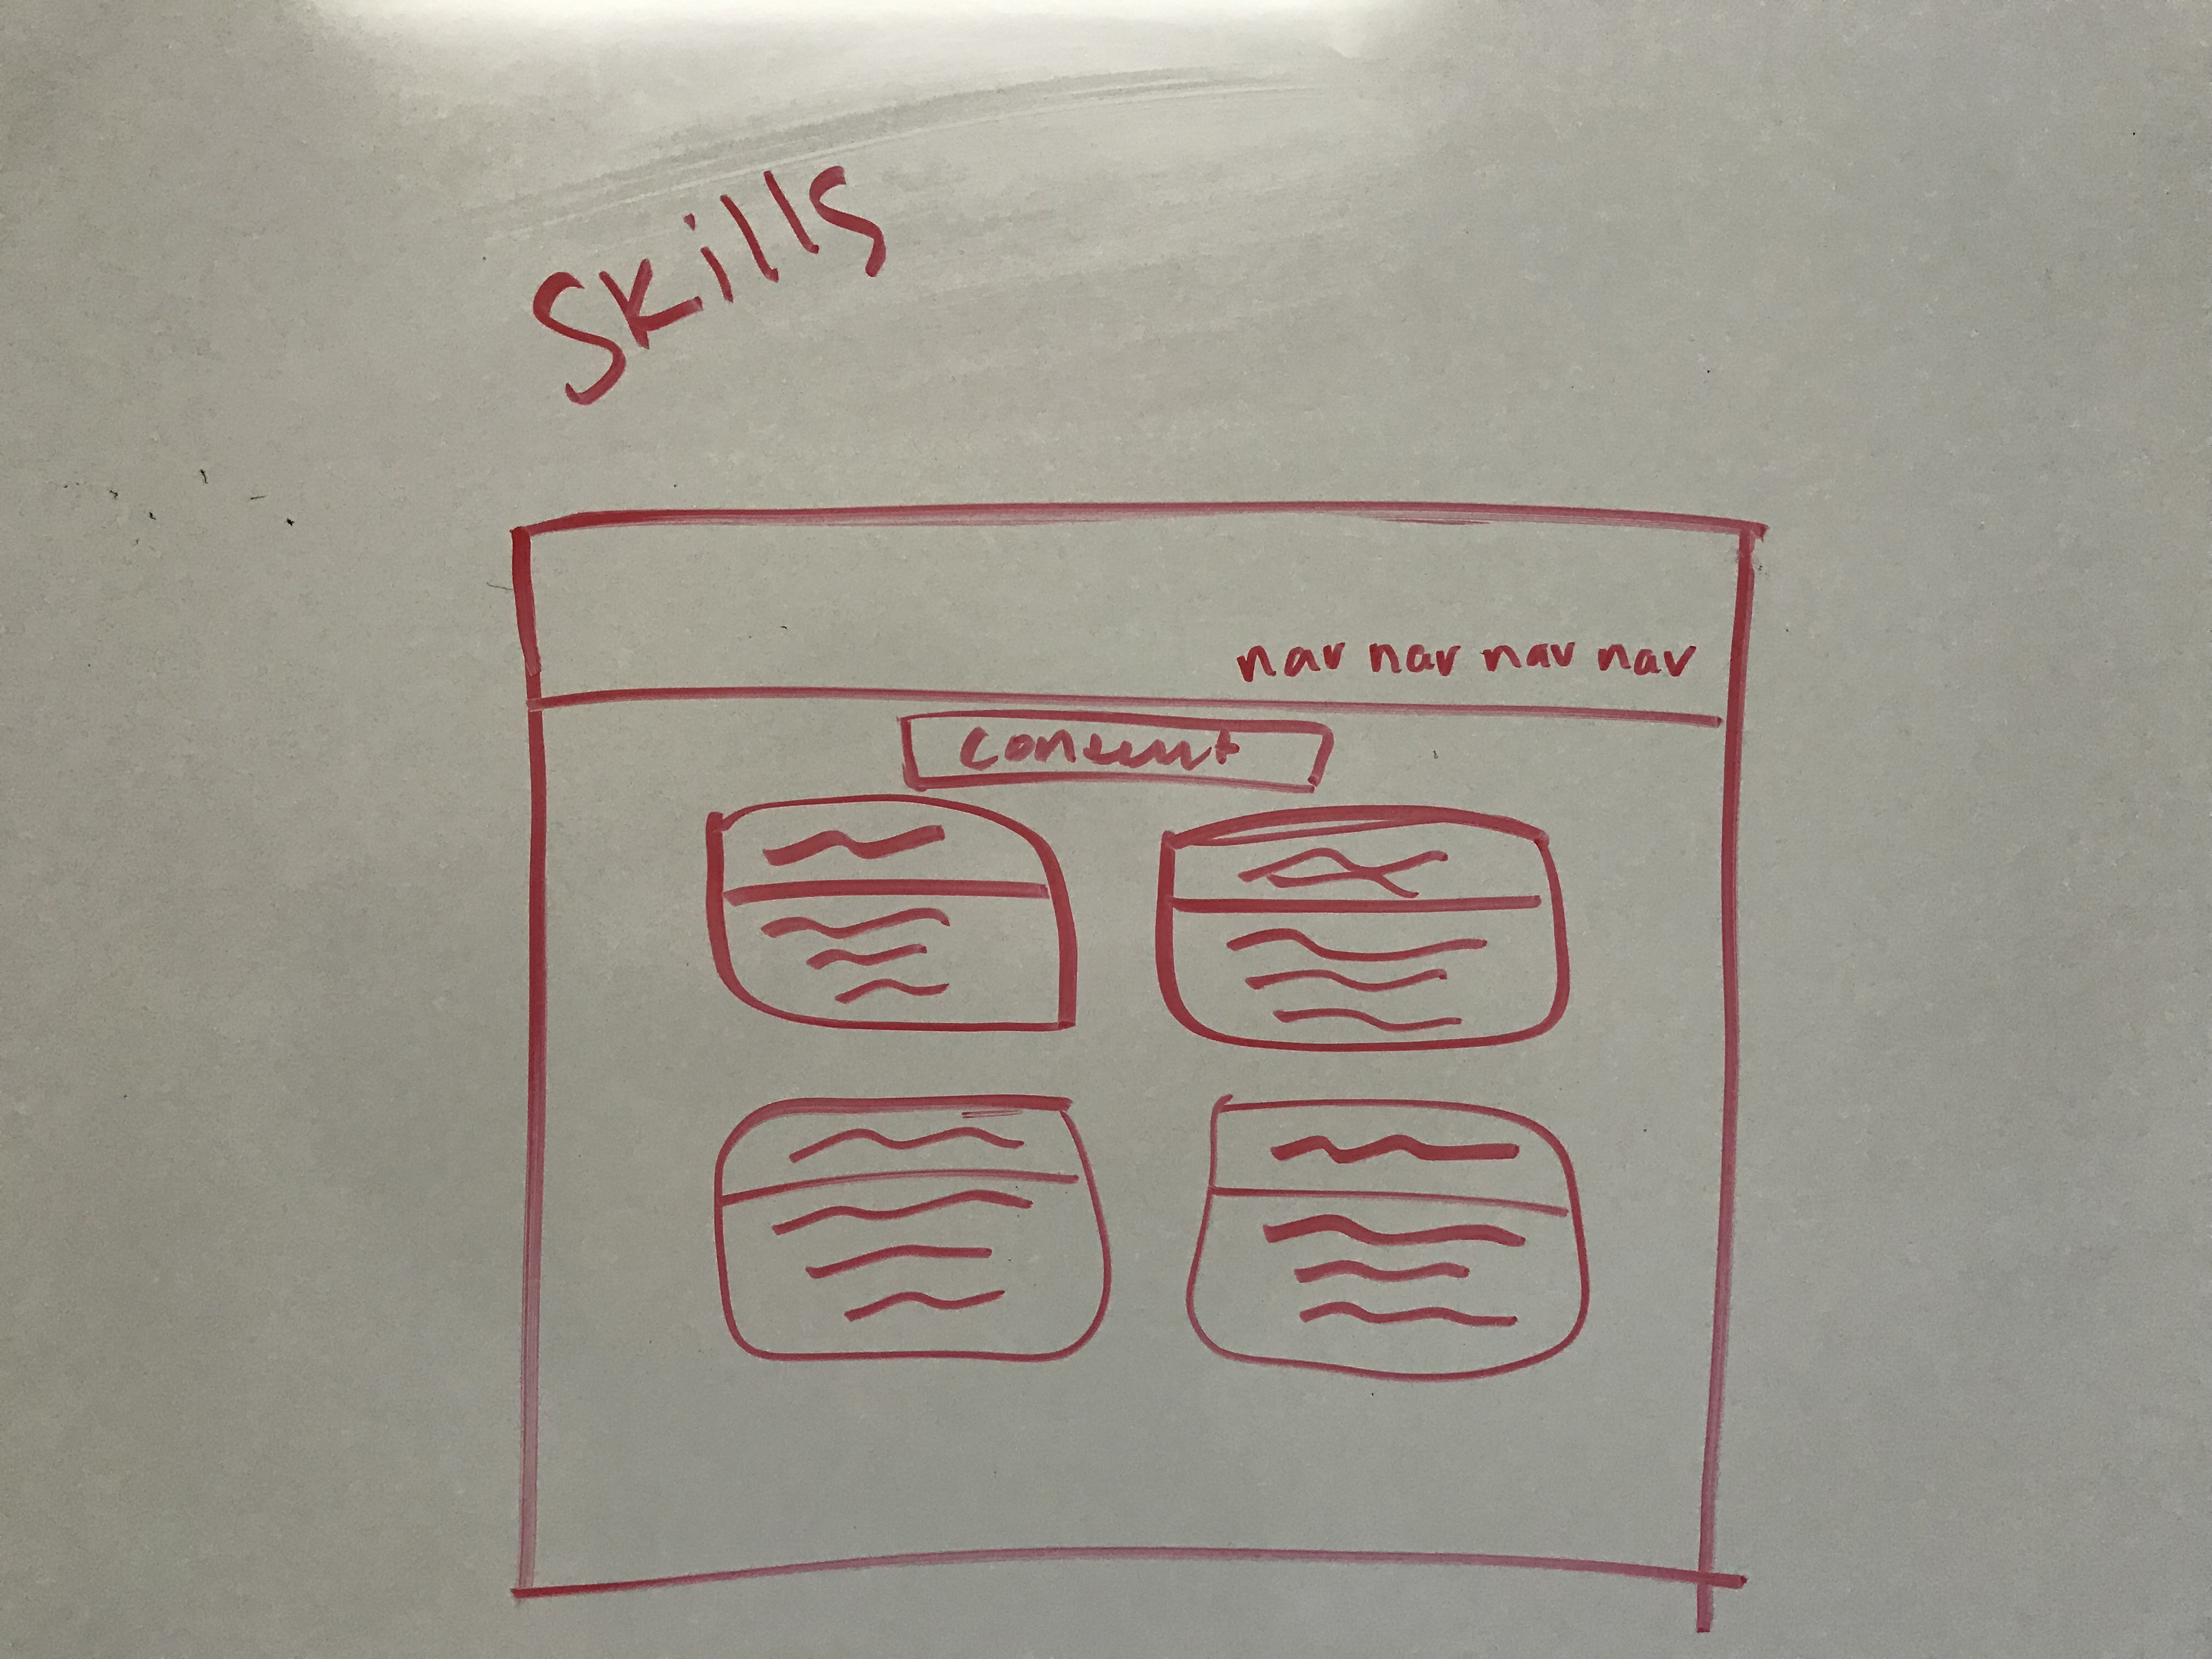 Skills
nav nav nav nav
content